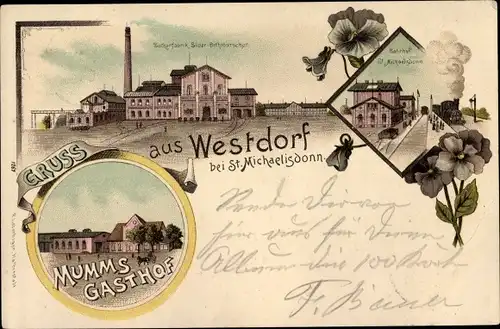 Zuckerfabrik Süder-Dithmarschen
Bahnhof
St. Michaelisdonn
GRUSS
aus Westdorf
bei St. Michaelisdonn
MUMMS
GASTHOF
Sende Dir
hier aus für Deine
Album die 100 Kart
F.